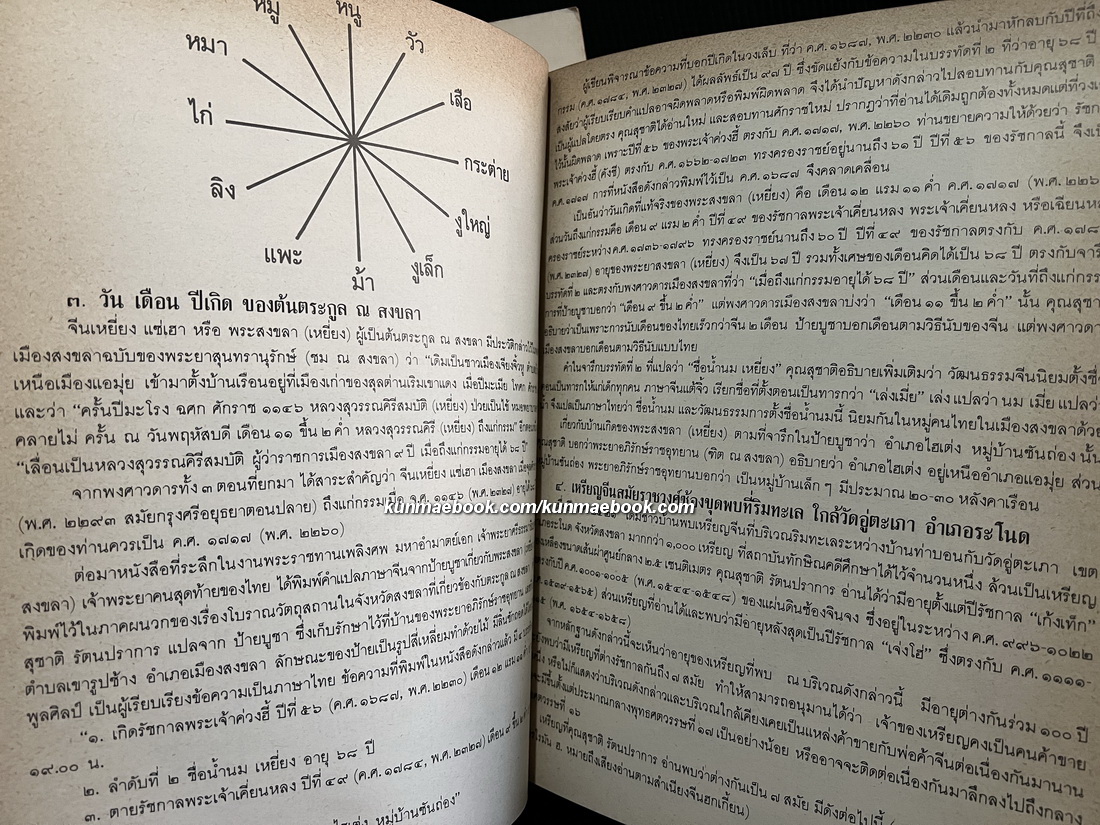 หมู
หนู
วัว
เสือ
กระต่าย
งูใหญ่
งูเล็ก
ม้า
แพะ
ลิง
ไก่
หมา
๓. วัน เดือน ปีเกิด ของต้นตระกูล ณ สงขลา
จีนเหยี่ยง แซ่เฮา หรือ พระสงขลา (เหยี่ยง) ผู้เป็นต้นตระกูล ณ สงขลา มีประวัติกล่าวไว้ใน
เมืองสงขลาฉบับของพระยาสุนทรานุรักษ์ (ชม ณ สงขลา) ว่า "เดิมเป็นชาวเมืองเจียงจิ้วหู
เหนือเมืองแอมุ่ย เข้ามาตั้งบ้านเรือนอยู่ที่เมืองเก่าของสุลต่านเริมเขาแดง เมื่อปีมะเมีย โทศก
และว่า "ครั้นปีมะโรง ฉศก ศักราช ๑๑๔๖ หลวงสุวรรณคิรีสมบัติ (เหยี่ยง) ป่วยเป็นไข้
คลายไม่ ครั้น ณ วันพฤหัสบดี เดือน ๑๑ ขึ้น ๒ ค่ำ หลวงสุวรรณคิรี (เหยี่ยง) ถึงแก่กรรม"
"เลื่อนเป็นหลวงสุวรรณคิรีสมบัติ ผู้ว่าราชการเมืองสงขลา ๙ ปี เมื่อถึงแก่กรรมอายุได้ ๖๘ ปี"
จากพงศาวดารทั้ง ๓ ตอนที่ยกมา ได้สาระสำคัญว่า จีนเหยี่ยง แซ่เฮา เมืองสงขลา
(พ.ศ. ๒๒๙๓ สมัยกรุงศรีอยุธยาตอนปลาย) ถึงแก่กรรมเมื่อ จ.ศ. ๑๑๔๖ (พ.ศ. ๒๓๒๗)
เกิดของท่านควรเป็น ค.ศ. ๑๗๑๗ (พ.ศ. ๒๒๖๐)
ต่อมาหนังสือที่ระลึกในงานพระราชทานเพลิงศพ มหาอำมาตย์เอก เจ้าพระยาศรีธรรมาธิ
สงขลา) เจ้าพระยาคนสุดท้ายของไทย ได้พิมพ์คำแปลภาษาจีนจากป้ายบูชาเกี่ยวกับพระสงขลา
พิมพ์ไว้ในภาคผนวกของเรื่องโบราณวัตถุสถานในจังหวัดสงขลาที่เกี่ยวข้องกับตระกูล ณ สงขลา
สุชาติ รัตนปราการ แปลจาก ป้ายบูชา ซึ่งเก็บรักษาไว้ที่บ้านของพระยาอภิรักษ์ราชอุทยาน
ตำบลเขารูปช้าง อำเภอเมืองสงขลา ลักษณะของป้ายเป็นรูปสี่เหลี่ยมทำด้วยไม้
พูลศิลป์ เป็นผู้เรียบเรียงข้อความเป็นภาษาไทย ข้อความที่พิมพ์ในหนังสือดังกล่าวแล้ว มี
"๑. เกิดรัชกาลพระเจ้าค่วงฮี้ ปีที่ ๕๖ (ค.ศ. ๑๖๘๗, พ.ศ. ๒๒๓๐) เดือน ๑๒ แรม ๑๑ ค่ำ
๑๙.๐๐ น.
๒. ลำดับที่ ๒ ชื่อน้ำนม เหยี่ยง อายุ ๖๘ ปี
๓. ตายรัชกาลพระเจ้าเคี่ยนหลง ปีที่ ๔๙ (ค.ศ. ๑๗๘๔, พ.ศ. ๒๓๒๗) เดือน ๙
ไฮเต่ง หมู่บ้านซันถ่อง"
ผู้เขียนพิจารณาข้อความที่บอกปีเกิดในวงเล็บ ที่ว่า ค.ศ. ๑๖๘๗, พ.ศ. ๒๒๓๐ แล้วนำมาหักลบกับปีที่ถึง
กรรม (ค.ศ. ๑๗๘๔, พ.ศ. ๒๓๒๗) ได้ผลลัพธ์เป็น ๙๗ ปี ซึ่งขัดแย้งกับข้อความในบรรทัดที่ ๒ ที่ว่าอายุ ๖๘ ปี
สงสัยว่าผู้เรียบเรียงคำแปลอาจผิดพลาดหรือพิมพ์ผิดพลาด จึงได้นำปัญหาดังกล่าวไปสอบทานกับคุณสุชาติ
เป็นผู้แปลโดยตรง คุณสุชาติได้อ่านใหม่ และสอบทานศักราชใหม่ ปรากฏว่าที่อ่านได้เดิมถูกต้องทั้งหมดแต่ที่วงเล็บ
ไว้นั้นผิดพลาด เพราะปีที่ ๕๖ ของพระเจ้าค่วงฮี้ ตรงกับ ค.ศ. ๑๗๑๗, พ.ศ. ๒๒๖๐ ท่านขยายความให้ด้วยว่า รัชกาล
พระเจ้าค่วงฮี้ (คังซี) ตรงกับ ค.ศ. ๑๖๖๒-๑๗๒๓ ทรงครองราชย์อยู่นานถึง ๖๑ ปี ปีที่ ๕๖ ของรัชกาลนี้ จึงเป็น
ค.ศ. ๑๗๑๗ การที่หนังสือดังกล่าวพิมพ์ไว้เป็น ค.ศ. ๑๖๘๗ จึงคลาดเคลื่อน
เป็นอันว่าวันเกิดที่แท้จริงของพระสงขลา (เหยี่ยง) คือ เดือน ๑๒ แรม ๑๑ ค่ำ ค.ศ. ๑๗๑๗ (พ.ศ. ๒๒๖
ส่วนวันถึงแก่กรรมคือ เดือน ๙ แรม ๒ ค่ำ ปีที่ ๔๙ ของรัชกาลพระเจ้าเคี่ยนหลง พระเจ้าเคี่ยนหลง หรือเฉียนหล
ครองราชย์ระหว่าง ค.ศ. ๑๗๓๖-๑๗๙๖ ทรงครองราชย์นานถึง ๖๐ ปี ปีที่ ๔๙ ของรัชกาลตรงกับ ค.ศ. ๑๗๘
(พ.ศ. ๒๓๒๗) อายุของพระยาสงขลา (เหยี่ยง) จึงเป็น ๖๗ ปี รวมทั้งเศษของเดือนคิดได้เป็น ๖๘ ปี ตรงกับจารึ
บรรทัดที่ ๒ และตรงกับพงศาวดารเมืองสงขลาที่ว่า "เมื่อถึงแก่กรรมอายุได้ ๖๘ ปี" ส่วนเดือนและวันที่ถึงแก่กรร
การที่ป้ายบูชาบอกว่า "เดือน ๙ ขึ้น ๒ ค่ำ" แต่พงศาวดารเมืองสงขลาบ่งว่า "เดือน ๑๑ ขึ้น ๒ ค่ำ" นั้น คุณสุชา
อธิบายว่าเป็นเพราะการนับเดือนของไทยเร็วกว่าจีน ๒ เดือน ป้ายบูชาบอกเดือนตามวิธีนับของจีน แต่พงศาวดา
เมืองสงขลาบอกเดือนตามวิธีนับแบบไทย
คำในจารึกบรรทัดที่ ๒ ที่แปลว่า "ชื่อน้ำนม เหยี่ยง" คุณสุชาติอธิบายเพิ่มเติมว่า วัฒนธรรมจีนนิยมตั้งชื่อ
ตอนเป็นทารกให้แก่เด็กทุกคน ภาษาจีนแต้จิ๋ว เรียกชื่อที่ตั้งตอนเป็นทารกว่า "ล่งเมี่ย" เล่ง แปลว่า นม เมี่ย แปลว่า
ว่า จึงแปลเป็นภาษาไทยว่า ชื่อน้ำนม และวัฒนธรรมการตั้งชื่อน้ำนมนี้ นิยมกันในหมู่คนไทยในเมืองสงขลาด้วย
เกี่ยวกับบ้านเกิดของพระสงขลา (เหยี่ยง) ตามที่จารึกในป้ายบูชาว่า อำเภอไฮเต่ง หมู่บ้านซันถ่อง นั้น
คุณสุชาติ บอกว่าพระยาอภิรักษ์ราชอุทยาน (ฑิต ณ สงขลา) อธิบายว่า อำเภอไฮเต่ง อยู่เหนืออำเภอแอมุ่ย ส่วน
หมู่บ้านซันถ่อง พระยาอภิรักษ์ราชอุทยานบอกว่า เป็นหมู่บ้านเล็ก ๆ มีประมาณ ๒๐-๓๐ หลังคาเรือน
๔. เหรียญจีนสมัยราชวงศ์ซ้องขุดพบที่ริมทะเล ใกล้วัดอู่ตะเภา อำเภอระโนด
kunmaebook.com/kunmaebook.com
ได้มีชาวบ้านพบเหรียญจีนที่บริเวณริมทะเลระหว่างบ้านท่าบอนกับวัดอู่ตะเภา เขต
อำเภอระโนด จังหวัดสงขลา มากกว่า ๑,๐๐๐ เหรียญ ที่สถาบันทักษิณคดีศึกษาได้ไว้จำนวนหนึ่ง ล้วนเป็นเหรียญ
เหลืองขนาดเส้นผ่าศูนย์กลาง ๒.๕ เซนติเมตร คุณสุชาติ รัตนปราการ อ่านได้ว่ามีอายุตั้งแต่ปีรัชกาล "เก้งเต็ก"
ตรงกับปี ค.ศ. ๑๐๐๑-๑๐๐๕ (พ.ศ. ๑๕๔๔-๑๕๔๘) ของแผ่นดินซ้องจินจง ซึ่งอยู่ในระหว่าง ค.ศ. ๙๙๖-๑๐๒๒
๑๕๓๙-๑๕๖๕) ส่วนเหรียญที่อ่านได้และพบว่ามีอายุหลังสุดเป็นปีรัชกาล "เจ่งโฮ่" ซึ่งตรงกับ ค.ศ. ๑๑๑๑-
(พ.ศ. ๑๖๕๔-๑๖๕๘)
จากหลักฐานดังกล่าวนี้จะเห็นว่าอายุของเหรียญที่พบ ณ บริเวณดังกล่าวนี้ มีอายุต่างกันร่วม ๑๐๐ ปี
พบว่ามีเหรียญที่ต่างรัชกาลกันถึง ๗ สมัย ทำให้สามารถอนุมานได้ว่า เจ้าของเหรียญคงเป็นคนค้าขาย
หรือไม่ก็แสดงว่าบริเวณดังกล่าวและบริเวณใกล้เคียงเคยเป็นแหล่งค้าขายกับพ่อค้าจีนต่อเนื่องกันมานาน
มีขึ้นตั้งแต่ประมาณกลางพุทธศตวรรษที่ ๑๗ เป็นอย่างน้อย หรืออาจจะติดต่อเนื่องกันมาลึกลงไปถึงกลาง
ศตวรรษที่ ๑๖
เหรียญที่คุณสุชาติ รัตนปราการ อ่านพบว่าต่างกันเป็น ๗ สมัย มีดังต่อไปนี้
โรมัน ฮ. หมายถึงเสียงอ่านตามสำเนียงจีนฮกเกี้ยน)